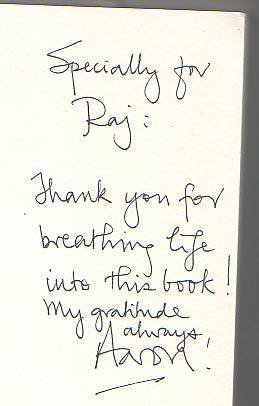 Specially for
Raj:
Thank you for
breathing life
into this book!
My gratitude
always,
Aaron!